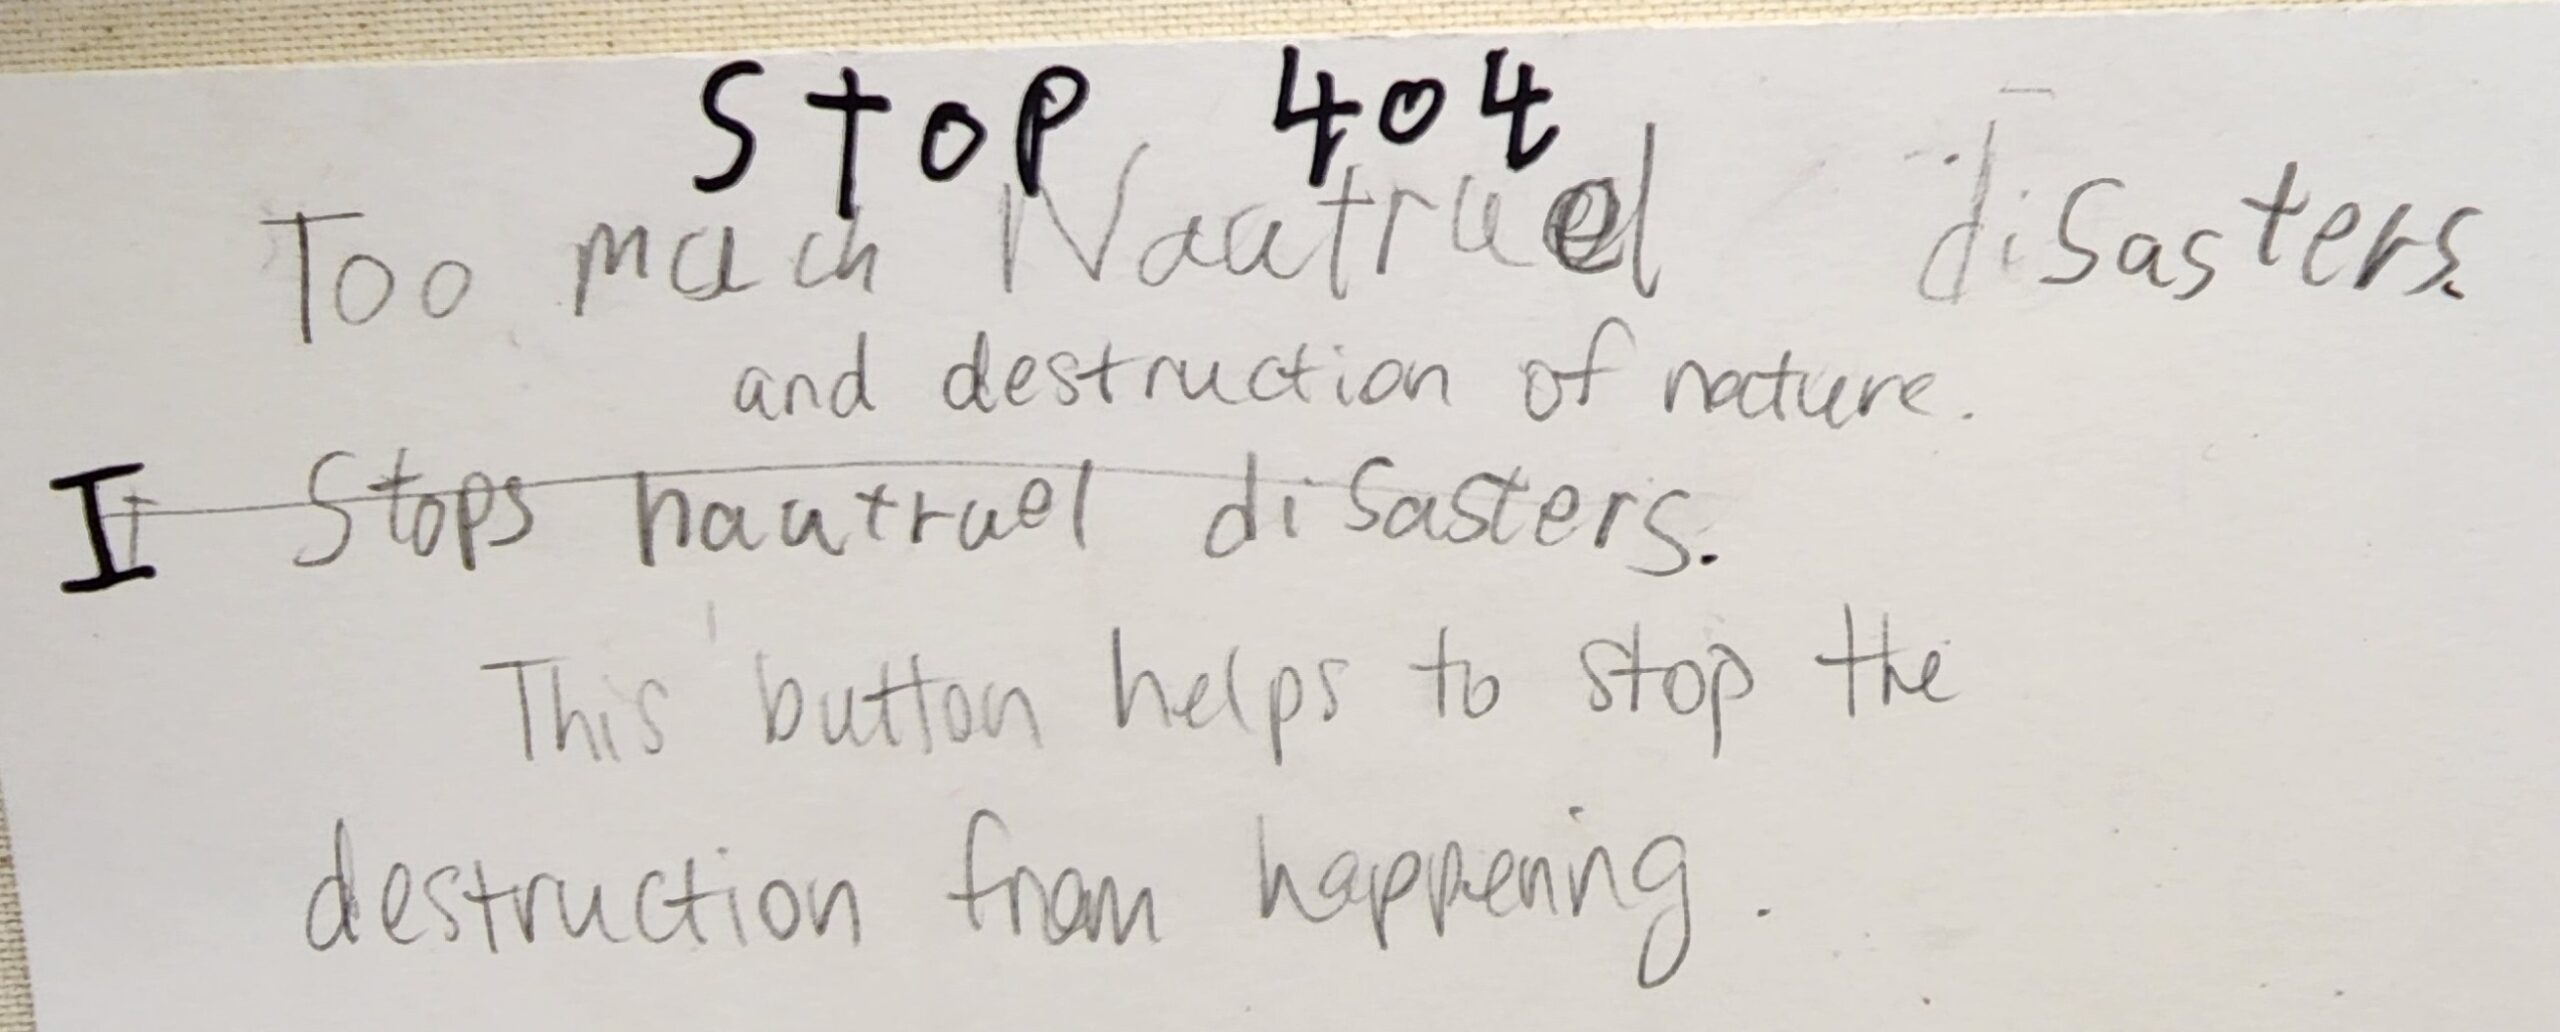 Stop 404
Too much Nautruel disasters.
and destruction of nature.
It Stops nautruel disasters.
This button helps to stop the
destruction from happening.